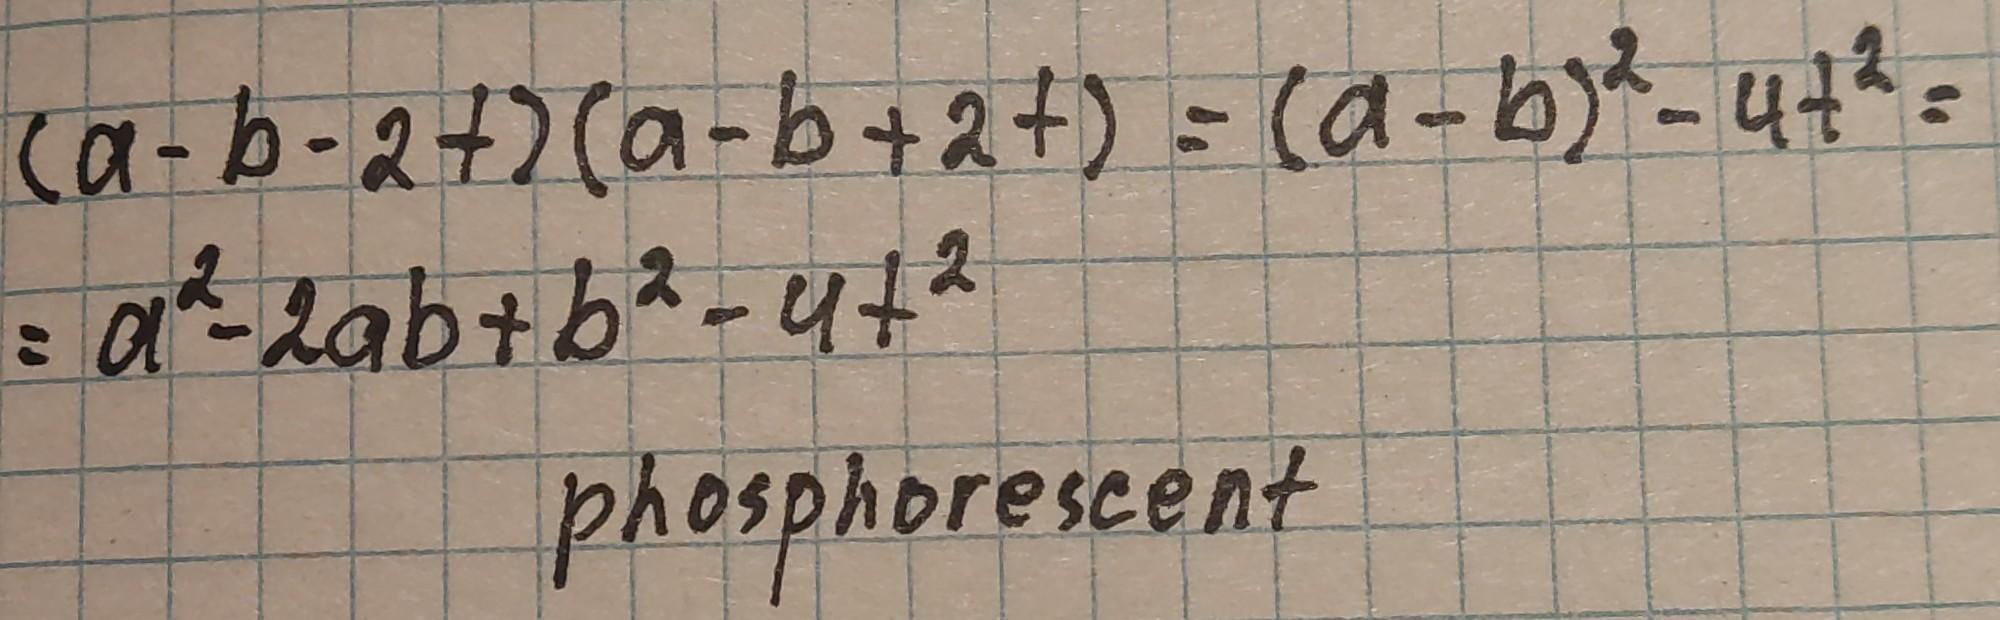 (a-b-2t)(a-b+2t)=(a-b)²-4t²=
=a²-2ab+b²-4t²
phosphorescent